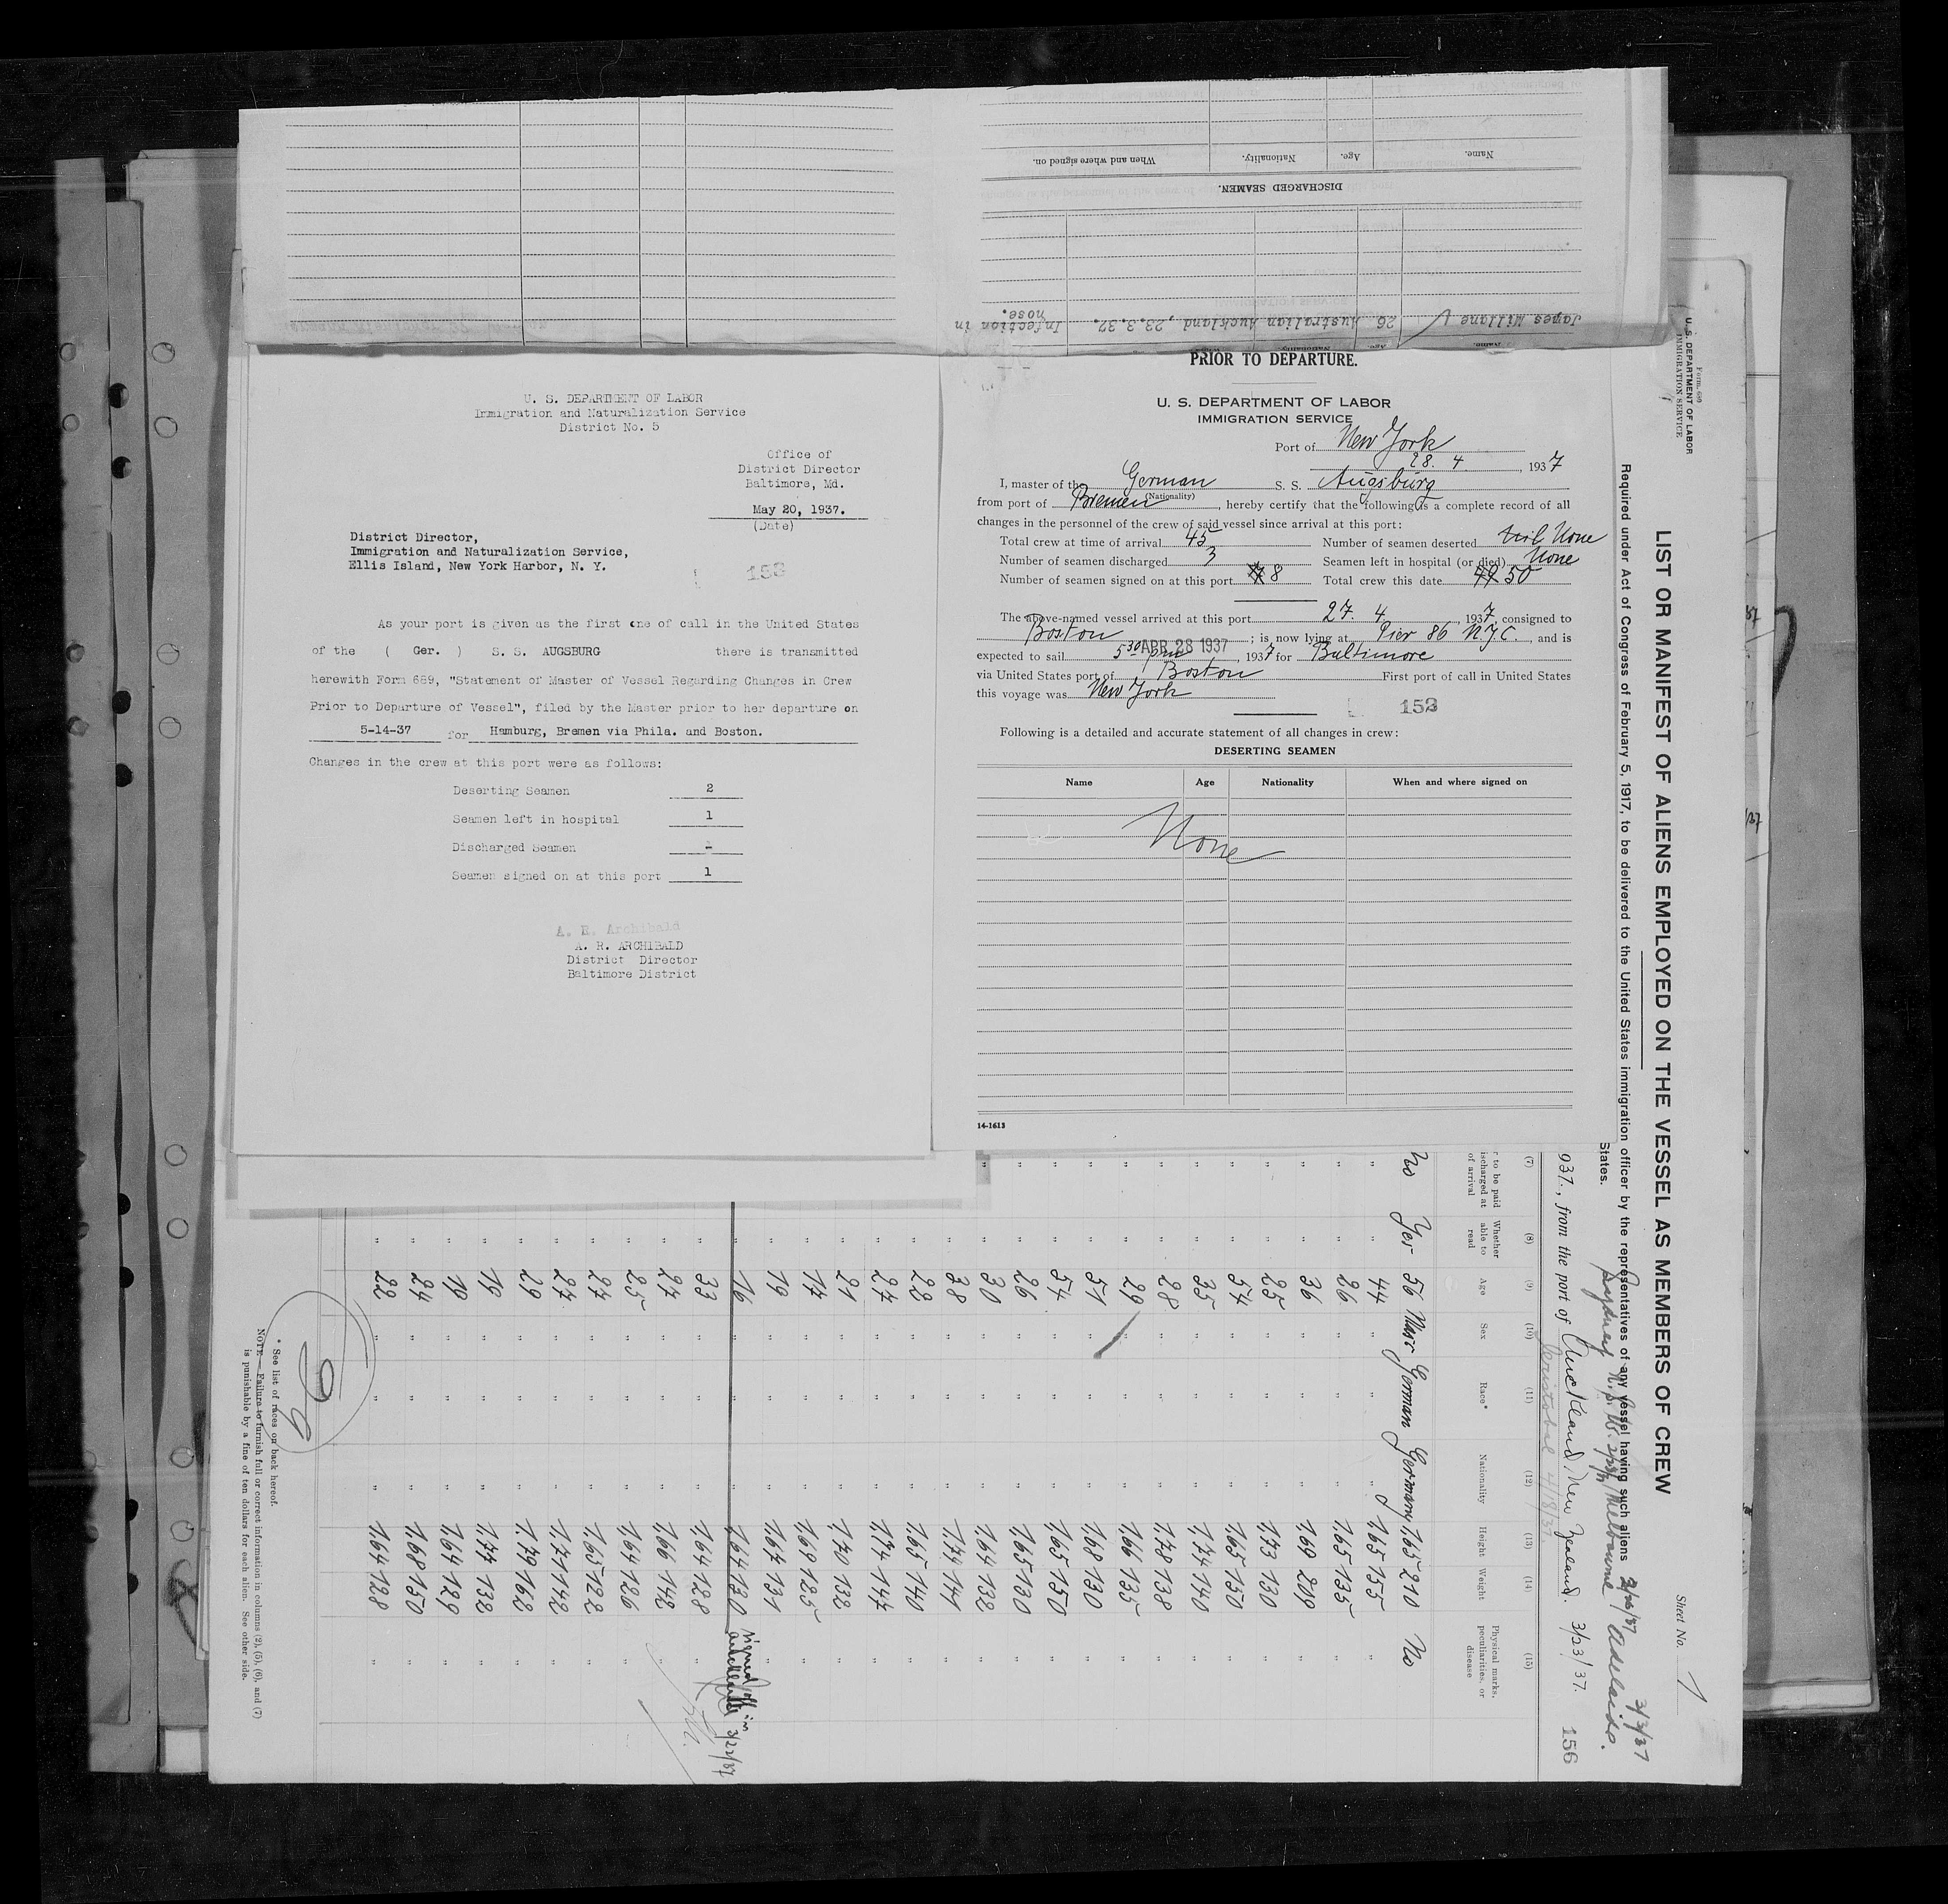 Name.
Age.
Nationality.
When and where signed on.
DISCHARGED SEAMEN.
James Millane
26
Australian
Auckland, 23.3.37.
Infection in
nose.
U. S. DEPARTMENT OF LABOR
Immigration and Naturalization Service
District No. 5
Office of
District Director
Baltimore, Md.
May 20, 1937.
(Date)
District Director,
Immigration and Naturalization Service,
Ellis Island, New York Harbor, N. Y.
153
As your port is given as the first one of call in the United States
of the ( Ger. ) S. S. AUGSBURG there is transmitted
herewith Form 689, "Statement of Master of Vessel Regarding Changes in Crew
Prior to Departure of Vessel", filed by the Master prior to her departure on
5-14-37 for Hamburg, Bremen via Phila. and Boston.
Changes in the crew at this port were as follows:
Deserting Seamen 2
Seamen left in hospital 1
Discharged Seamen -
Seamen signed on at this port 1
A. R. Archibald
A. R. ARCHIBALD
District Director
Baltimore District
PRIOR TO DEPARTURE.
U. S. DEPARTMENT OF LABOR
IMMIGRATION SERVICE
Port of New York
28. 4. , 1937
I, master of the German S. S. Augsburg
(Nationality)
from port of Bremen, hereby certify that the following is a complete record of all
changes in the personnel of the crew of said vessel since arrival at this port:
Total crew at time of arrival 45 Number of seamen deserted None
Number of seamen discharged 3 Seamen left in hospital (or died) None
Number of seamen signed on at this port 8 Total crew this date 49 50
The above-named vessel arrived at this port 27. 4. , 1937, consigned to
Boston ; is now lying at Pier 86 N.Y.C. , and is
expected to sail 5 30 pm APR 28 1937 , 1937 for Baltimore
via United States port of Boston First port of call in United States
this voyage was New York
153
Following is a detailed and accurate statement of all changes in crew:
DESERTING SEAMEN
Name Age Nationality When and where signed on
None
14-1613
Form 689
U. S. DEPARTMENT OF LABOR
IMMIGRATION SERVICE
LIST OR MANIFEST OF ALIENS EMPLOYED ON THE VESSEL AS MEMBERS OF CREW
Sheet No. 1
Required under Act of Congress of February 5, 1917, to be delivered to the United States immigration officer by the representatives of any vessel having such aliens
States.
Sydney N.S.W. Melbourne Adelaide. 3/3/37
937., from the port of Auckland, New Zealand. 3/23/37.
Cristobal 4/18/37.
156
(7) (8) (9) (10) (11) (12) (13) (14) (15)
to be paid
discharged at
of arrival
Whether
able to
read
Age
Sex
Race*
Nationality
Height
Weight
Physical marks,
peculiarities, or
disease
No Yes 56 Masc German Germany 1,65 210 No
" " 44 " " " 1,65 155 "
" " 26 " " " 1,65 135 "
" " 36 " " " 1,69 209 "
" " 25 " " " 1,73 130 "
" " 54 " " " 1,65 150 "
" " 35 " " " 1,74 140 "
" " 28 " " " 1,78 138 "
" " 29 " " " 1,66 135 "
" " 51 " " " 1,68 130 "
" " 54 " " " 1,65 150 "
" " 26 " " " 1,65 130 "
" " 30 " " " 1,64 132 "
" 38 " " " 1,79 141 "
" 22 " " " 1,65 140 "
" 27 " " " 1,74 147 "
" 21 " " " 1,70 132 "
" 17 " " " 1,69 125 "
" 19 " " " 1,67 131 "
" 16 " " " 1,64 130 signed off in Auckland 3/22/37
" 33 " " " 1,64 128
" 27 " " " 1,66 142 "
" 25 " " " 1,64 126 "
" 27 " " " 1,65 122 "
" 27 " " " 1,71 142 "
" 29 " " " 1,79 162 "
" 19 " " " 1,77 132 "
" 19 " " " 1,64 129 "
" 24 " " " 1,68 150 "
" 22 " " " 1,64 128 "
* See list of races on back hereof.
NOTE.—Failure to furnish full or correct information in columns (2), (5), (6), and (7)
is punishable by a fine of ten dollars for each alien. See other side.